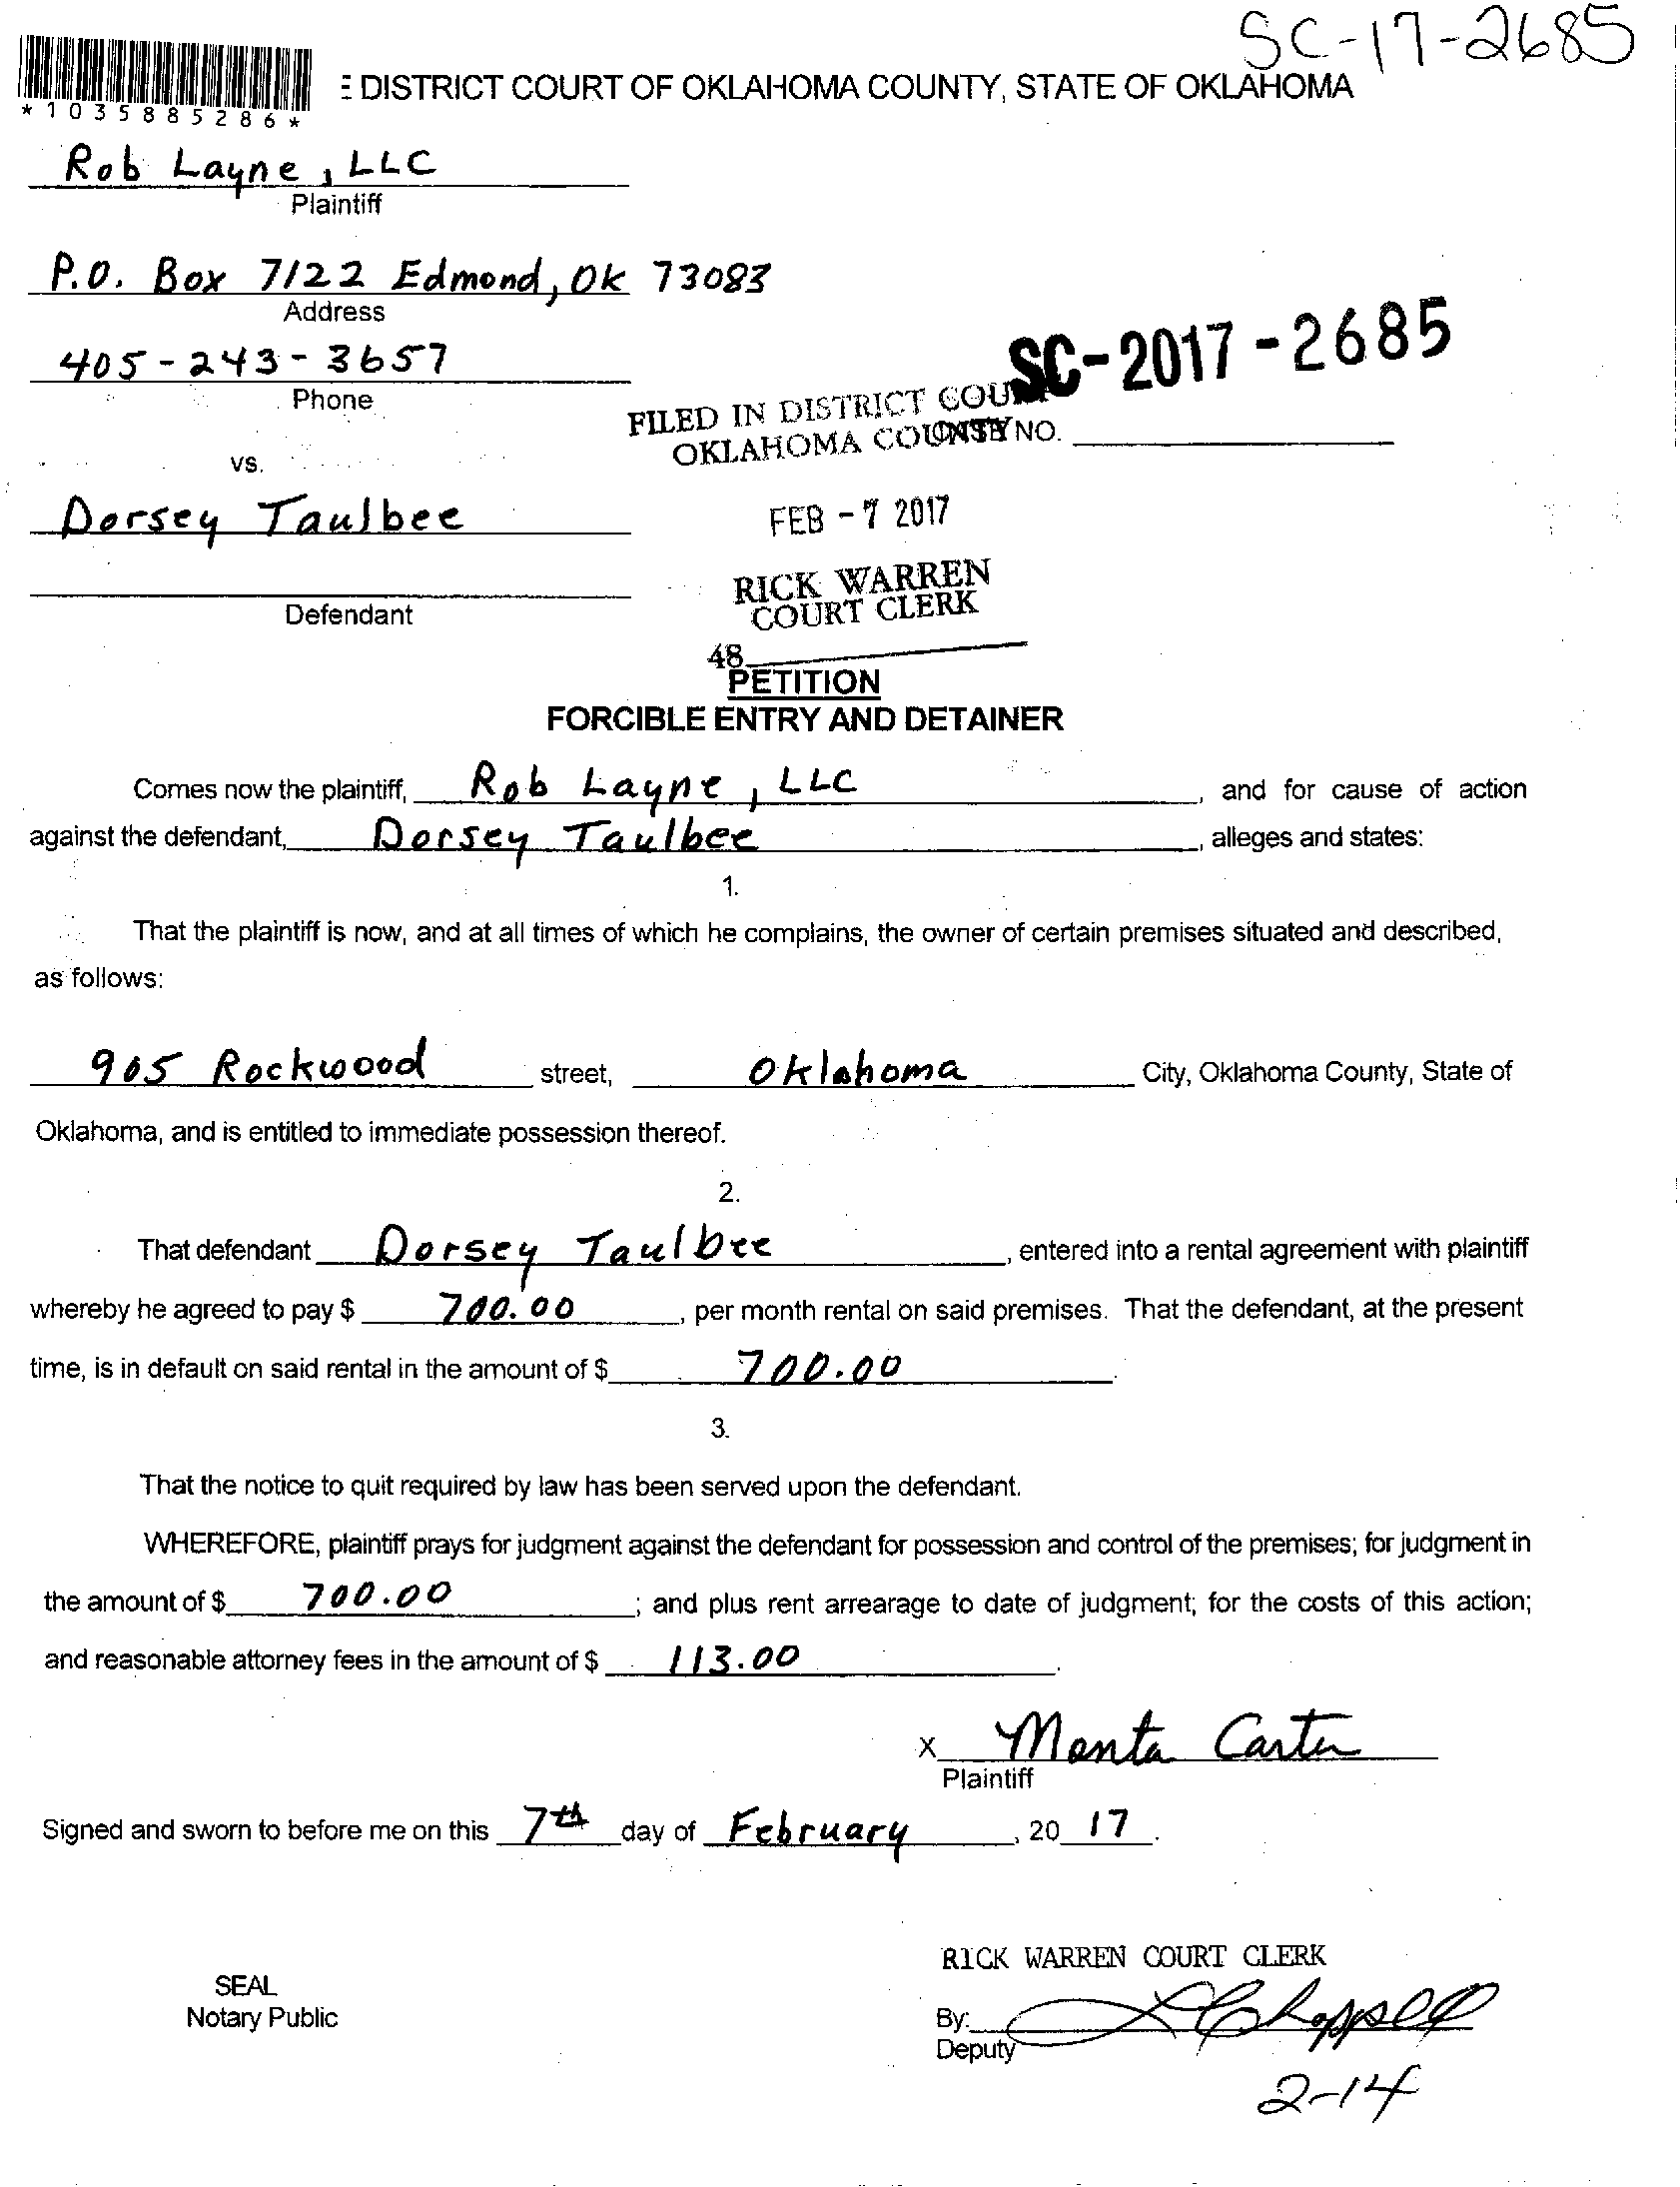 SC-17-2685
E DISTRICT COURT OF OKLAHOMA COUNTY, STATE OF OKLAHOMA
*1035885286*
Rob Layne, LLC
Plaintiff
P.O. Box 7122 Edmond, Ok 73083
Address
SC-2017-2685
405-243-3657
Phone
FILED IN DISTRICT COURT
OKLAHOMA COUNTY
CASE NO.
vs.
Dorsey Taulbee
FEB - 7 2017
RICK WARREN
COURT CLERK
Defendant
48
PETITION
FORCIBLE ENTRY AND DETAINER
Comes now the plaintiff, Rob Layne, LLC, and for cause of action
against the defendant, Dorsey Taulbee, alleges and states:
1.
That the plaintiff is now, and at all times of which he complains, the owner of certain premises situated and described,
as follows:
905 Rockwood street, Oklahoma City, Oklahoma County, State of
Oklahoma, and is entitled to immediate possession thereof.
2.
That defendant Dorsey Taulbee, entered into a rental agreement with plaintiff
whereby he agreed to pay $ 700.00, per month rental on said premises. That the defendant, at the present
time, is in default on said rental in the amount of $ 700.00.
3.
That the notice to quit required by law has been served upon the defendant.
WHEREFORE, plaintiff prays for judgment against the defendant for possession and control of the premises; for judgment in
the amount of $ 700.00; and plus rent arrearage to date of judgment; for the costs of this action;
and reasonable attorney fees in the amount of $ 113.00.
X Manta Carter
Plaintiff
Signed and sworn to before me on this 7th day of February, 20 17.
RICK WARREN COURT CLERK
SEAL
Notary Public
By: Chappell
Deputy
2-14